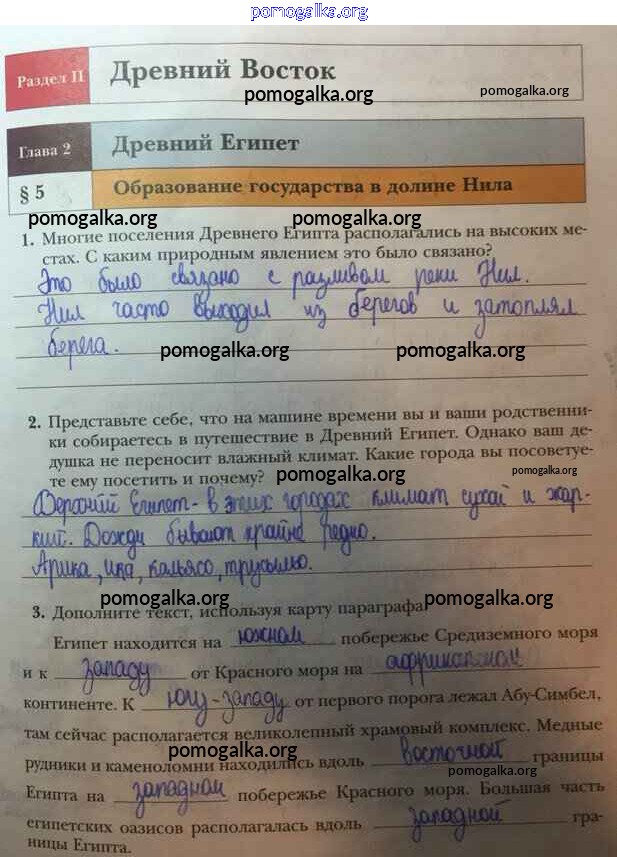 pomogalka.org
Раздел II
Древний Восток
pomogalka.org
pomogalka.org
Глава 2
Древний Египет
§ 5
Образование государства в долине Нила
pomogalka.org
pomogalka.org
1. Многие поселения Древнего Египта располагались на высоких ме-
стах. С каким природным явлением это было связано?
Это было связано с разливом реки Нил.
Нил часто выходил из берегов и затоплял
берега.
pomogalka.org
pomogalka.org
2. Представьте себе, что на машине времени вы и ваши родственни-
ки собираетесь в путешествие в Древний Египет. Однако ваш де-
душка не переносит влажный климат. Какие города вы посоветуе-
те ему посетить и почему?
pomogalka.org
pomogalka.org
Верхний Египет - в этих городах климат сухой и жар-
кий. Дожди бывают крайне редко.
pomogalka.org
pomogalka.org
3. Дополните текст, используя карту параграфа.
Египет находится на южном побережье Средиземного моря
и к западу от Красного моря на африканском
континенте. К юго-западу от первого порога лежал Абу-Симбел,
там сейчас располагается великолепный храмовый комплекс. Медные
pomogalka.org
рудники и каменоломни находились вдоль восточной границы
pomogalka.org
Египта на западном побережье Красного моря. Большая часть
египетских оазисов располагалась вдоль западной гра-
ницы Египта.